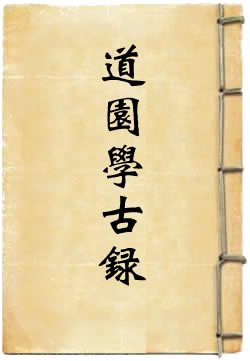 道園學古録